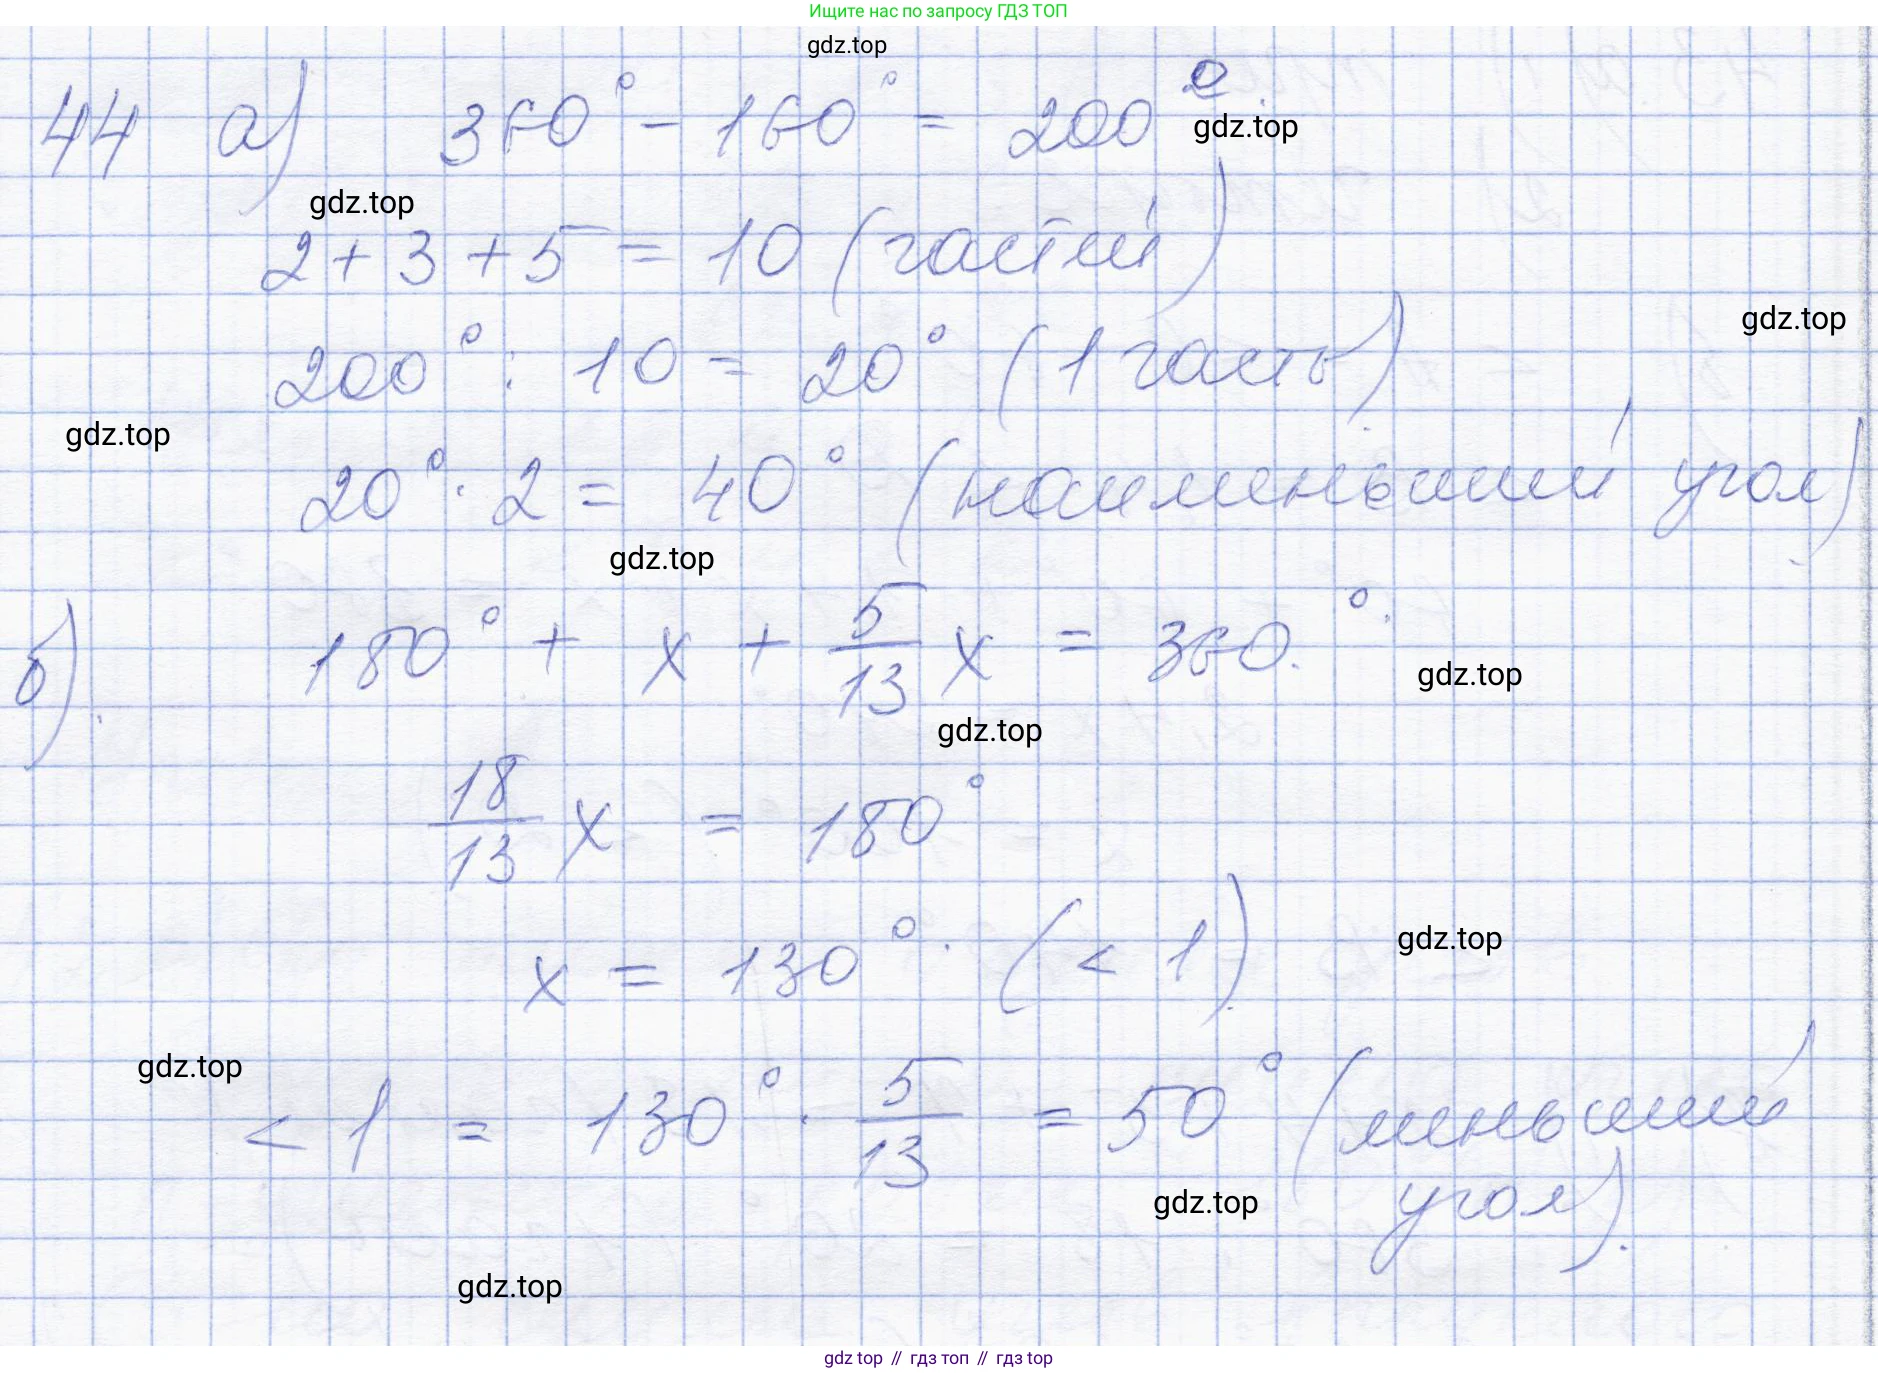 Ищите нас по запросу ГДЗ ТОП
gdz.top
44 а) 360° - 160° = 200°
gdz.top
gdz.top
2 + 3 + 5 = 10 (частей)
gdz.top
200° : 10 = 20° (1 часть)
gdz.top
20° · 2 = 40° (наименьший угол)
gdz.top
б) 180° + x + 5/13 x = 360°
gdz.top
gdz.top
18/13 x = 180°
x = 130° (< 1)
gdz.top
gdz.top
< 1 = 130° · 5/13 = 50° (меньший
угол).
gdz.top
gdz.top
gdz top // гдз топ // гдз top